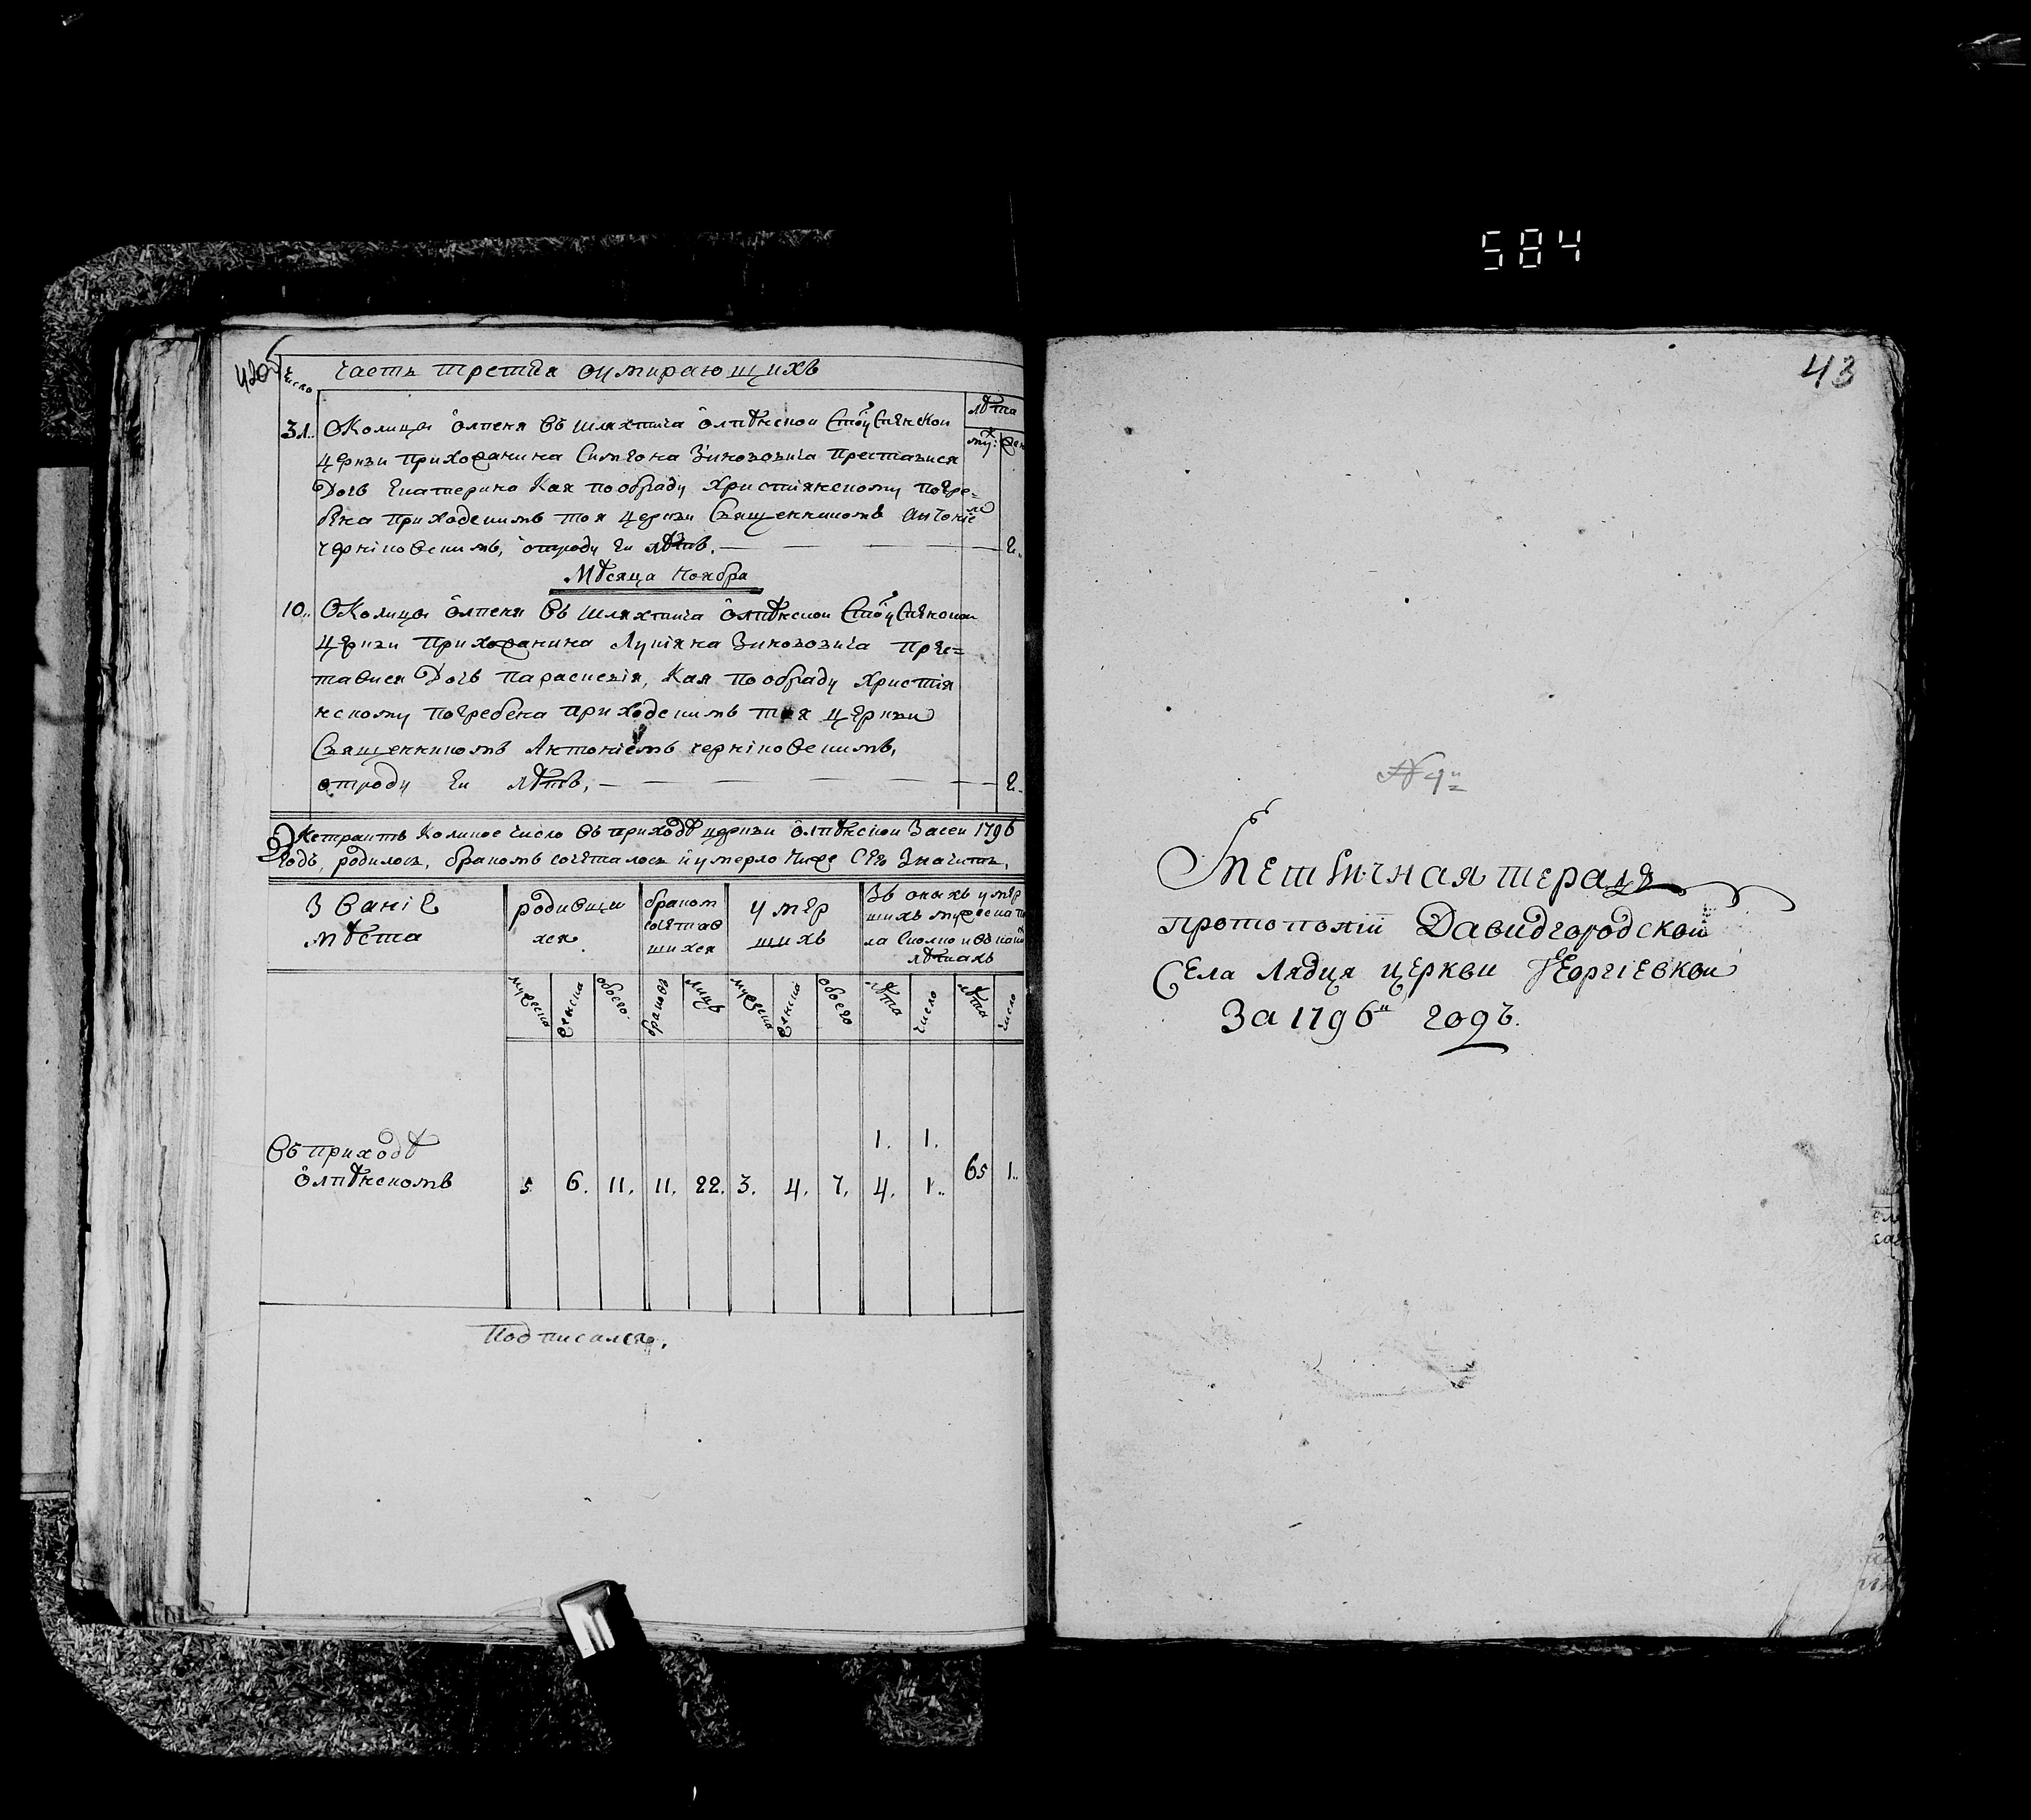 584
число Часть третия оумирающихъ
лѣта
му: жен
31. Околицы Ольпеня въ шляхтича Ольпѣнской Стоуспенской
церкви прихожанина Симеона Зинововича преставися
Дочь Екатерина Кая по обряду христiянскому погре=
бена приходскимъ тоя церкви Священникомъ Антонiемъ
Чернiковскимъ, отроду ея лѣтъ. 2.
Мѣсяца Ноября
10. Околицы Ольпеня въ шляхтича Ольпѣнской Стоуспенской
церкви прихожанина Лукiяна Зинововича пре=
тавися Дочь Параскевiя, Кая по обряду Христiя
нскому погребена приходскимъ тоя церкви
Священникомъ Антонiемъ Чернiковскимъ,
отроду ея лѣтъ. 2.
Экстрактъ Коликое число въ приходѣ церкви Ольпѣнской За сей 1796
годъ, родилось, бракомъ сочеталось и умерло ниже Сего Значитъ.
Званiе мѣста
родивши хся
браком сочетав шихся
умер шихъ
въ оныхъ умер
шихъ мужеска по
ла Сколко и въ каки
лѣтахъ
мужеска женска обоего браковъ лицъ мужеска женска обоего лѣта число лѣта число
Въ приходѣ
Ольпѣнскомъ 5 6. 11. 11. 22. 3. 4. 7. 1. 1. 4. 1. 65 1.
Подписался.
43
Метричная тетрадь
протопопiи Давидгородской
Села Лядця церкви Георгiевкой
За 1796 годъ.